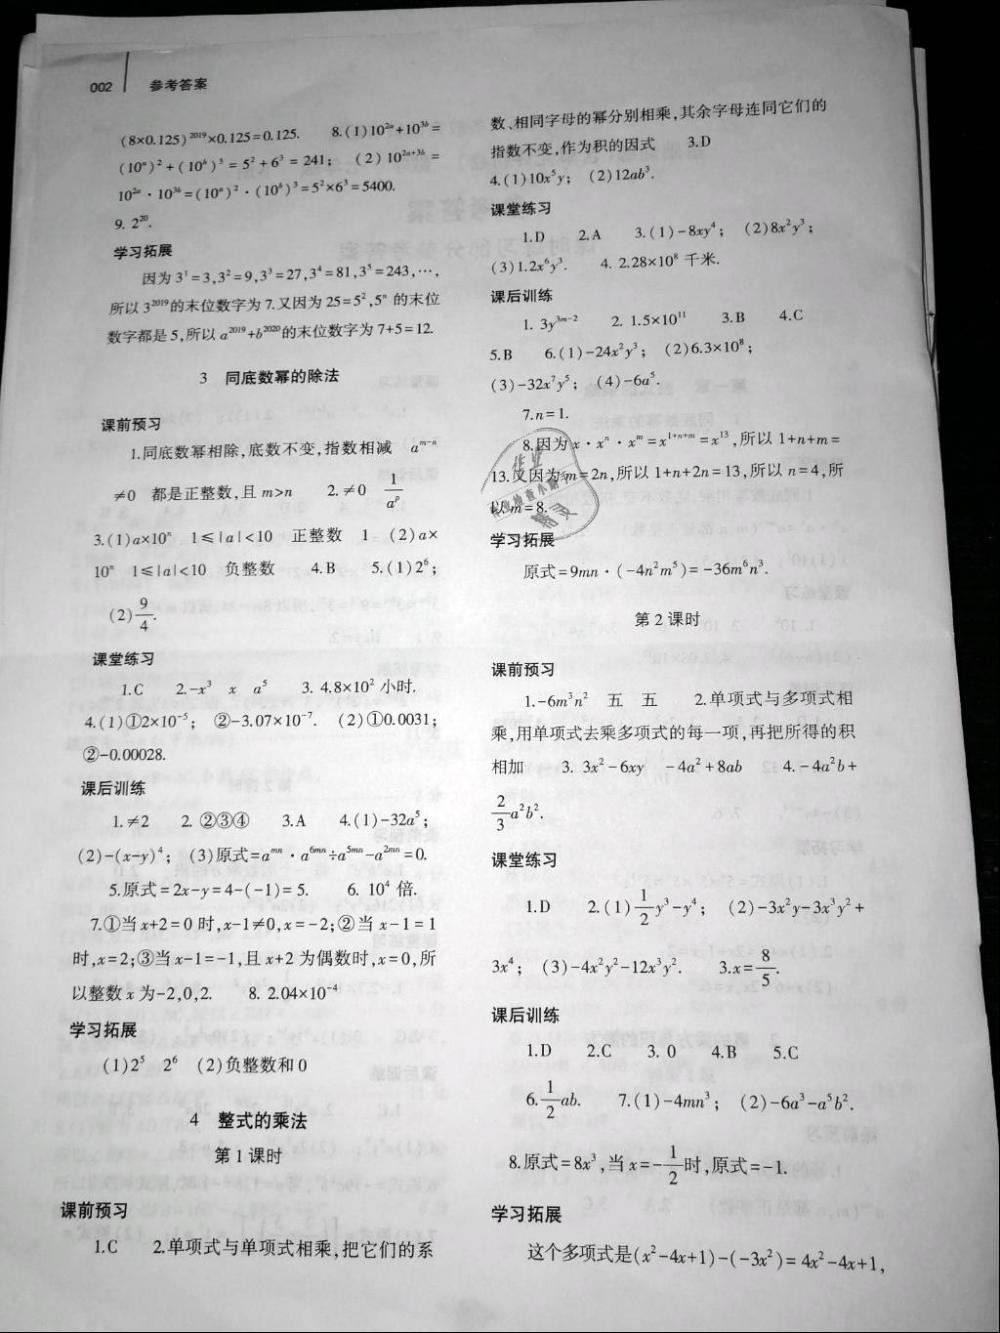 002 参考答案
(8×0.125)²⁰¹⁹×0.125=0.125. 8.(1)10²ᵃ+10³ᵇ=
(10ᵃ)²+(10ᵇ)³=5²+6³=241; (2)10²ᵃ⁺³ᵇ=
10²ᵃ·10³ᵇ=(10ᵃ)²·(10ᵇ)³=5²×6³=5400.
9. 2²⁰.
学习拓展
因为3¹=3,3²=9,3³=27,3⁴=81,3⁵=243,⋯,
所以3²⁰¹⁹的末位数字为7.又因为25=5²,5ⁿ的末位
数字都是5,所以a²⁰¹⁹+b²⁰²⁰的末位数字为7+5=12.
3 同底数幂的除法
课前预习
1.同底数幂相除,底数不变,指数相减 aᵐ⁻ⁿ
≠0 都是正整数,且m>n 2.≠0 1/aᵖ
3.(1)a×10ⁿ 1≤|a|<10 正整数 1 (2)a×
10ⁿ 1≤|a|<10 负整数 4.B 5.(1)2⁶;
(2)9/4.
课堂练习
1.C 2.-x³ x a⁵ 3. 4.8×10²小时.
4.(1)①2×10⁻⁵; ②-3.07×10⁻⁷. (2)①0.0031;
②-0.00028.
课后训练
1.≠2 2. ②③④ 3.A 4.(1)-32a⁵;
(2)-(x-y)⁴; (3)原式=aᵐⁿ·a⁶ᵐⁿ÷a⁵ᵐⁿ-a²ᵐⁿ=0.
5.原式=2x-y=4-(-1)=5. 6. 10⁴倍.
7.①当x+2=0时,x-1≠0,x=-2;②当x-1=1
时,x=2;③当x-1=-1,且x+2为偶数时,x=0,所
以整数x为-2,0,2. 8. 2.04×10⁻⁴
学习拓展
(1)2⁵ 2⁶ (2)负整数和0
4 整式的乘法
第1课时
课前预习
1.C 2.单项式与单项式相乘,把它们的系
数、相同字母的幂分别相乘,其余字母连同它们的
指数不变,作为积的因式 3.D
4.(1)10x⁵y; (2)12ab³.
课堂练习
1.D 2.A 3.(1)-8xy⁴; (2)8x²y³;
(3)1.2x⁶y³. 4. 2.28×10⁸千米.
课后训练
1. 3y³ᵐ⁻² 2. 1.5×10¹¹ 3.B 4.C
5.B 6.(1)-24x²y³; (2)6.3×10⁸;
(3)-32x⁷y⁵; (4)-6a⁵.
7.n=1.
8.因为x·xⁿ·xᵐ=x¹⁺ⁿ⁺ᵐ=x¹³,所以1+n+m=
13.又因为m=2n,所以1+n+2n=13,所以n=4,所
以m=8.
学习拓展
原式=9mn·(-4n²m⁵)=-36m⁶n³.
第2课时
课前预习
1.-6m³n² 五 五 2.单项式与多项式相
乘,用单项式去乘多项式的每一项,再把所得的积
相加 3. 3x²-6xy -4a²+8ab 4.-4a²b+
2/3a²b².
课堂练习
1.D 2.(1)1/2y³-y⁴; (2)-3x²y-3x³y²+
3x⁴; (3)-4x²y²-12x³y². 3.x=8/5.
课后训练
1.D 2.C 3. 0 4.B 5.C
6.1/2ab. 7.(1)-4mn³; (2)-6a³-a⁵b².
8.原式=8x³,当x=-1/2时,原式=-1.
学习拓展
这个多项式是(x²-4x+1)-(-3x²)=4x²-4x+1,